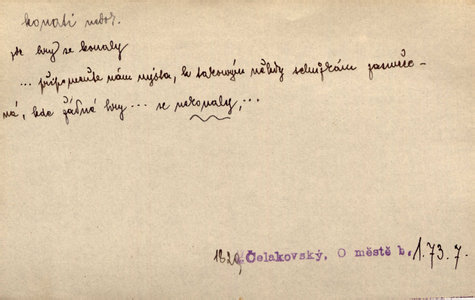 konati nebož.
že hry se konaly
... připomeňte nám mýsta, k takovým někdy schůzkám zasvěce-
ná, kde žádné hry ... se nekonaly, ...
1829, Čelakovský, O městě b. 1. 73. 7.